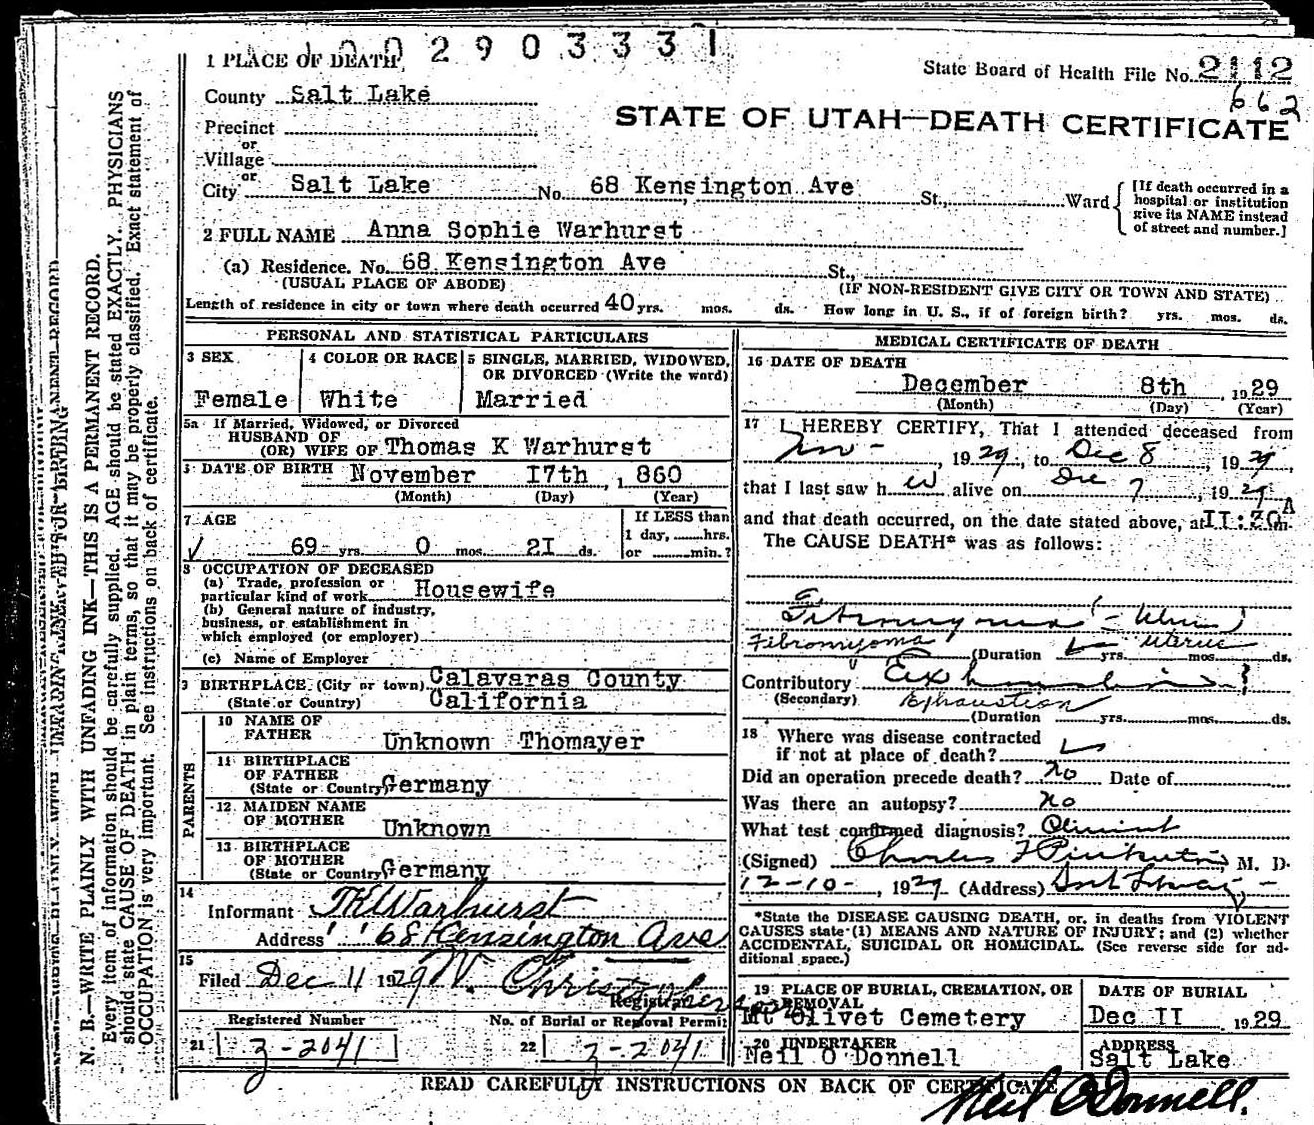 1 PLACE OF DEATH 1002903331
State Board of Health File No. 2112
662
County Salt Lake
STATE OF UTAH—DEATH CERTIFICATE
Precinct
or
Village
or
City Salt Lake No. 68 Kensington Ave St., Ward
[If death occurred in a
hospital or institution
give its NAME instead
of street and number.]
2 FULL NAME Anna Sophie Warhurst
(a) Residence. No. 68 Kensington Ave St.,
(USUAL PLACE OF ABODE) (IF NON-RESIDENT GIVE CITY OR TOWN AND STATE)
Length of residence in city or town where death occurred 40 yrs. mos. ds. How long in U. S., if of foreign birth? yrs. mos. ds.
PERSONAL AND STATISTICAL PARTICULARS
3 SEX
Female
4 COLOR OR RACE
White
5 SINGLE, MARRIED, WIDOWED,
OR DIVORCED (Write the word)
Married
5a If Married, Widowed, or Divorced
HUSBAND OF
(OR) WIFE OF Thomas K Warhurst
DATE OF BIRTH November 17th, 1 860
(Month) (Day) (Year)
7 AGE
69 yrs. 0 mos. 2I ds.
If LESS than
1 day, hrs.
or min.?
8 OCCUPATION OF DECEASED
(a) Trade, profession or
particular kind of work Housewife
(b) General nature of industry,
business, or establishment in
which employed (or employer)
(c) Name of Employer
9 BIRTHPLACE (City or town) Calavaras County
(State or Country) California
PARENTS
10 NAME OF
FATHER Unknown Thomayer
11 BIRTHPLACE
OF FATHER
(State or Country) Germany
12 MAIDEN NAME
OF MOTHER Unknown
13 BIRTHPLACE
OF MOTHER
(State or Country) Germany
14
Informant TK Warhurst
Address 68 Kensington Ave
15
Filed Dec 11 1929 W. Christopherson
Registrar
Registered Number
21 z-2041
No. of Burial or Removal Permit
22 z-2041
MEDICAL CERTIFICATE OF DEATH
16 DATE OF DEATH
December 8th, 1929
(Month) (Day) (Year)
17 I HEREBY CERTIFY, That I attended deceased from
Nov -, 1929, to Dec 8, 1929
that I last saw her alive on Dec 7, 1929
and that death occurred, on the date stated above, at II:20A m.
The CAUSE DEATH* was as follows:
Fibromyoma (- Uterus)
Fibromyoma Uterus
(Duration yrs. mos. ds.
Contributory Exhaustion
(Secondary) Exhaustion
(Duration yrs. mos. ds.
18 Where was disease contracted
if not at place of death?
Did an operation precede death? no Date of
Was there an autopsy? no
What test confirmed diagnosis? Clinical
(Signed) Charles F Pinkerton, M. D.
12-10-, 1929 (Address)
*State the DISEASE CAUSING DEATH, or, in deaths from VIOLENT
CAUSES state (1) MEANS AND NATURE OF INJURY; and (2) whether
ACCIDENTAL, SUICIDAL OR HOMICIDAL. (See reverse side for ad-
ditional space.)
19 PLACE OF BURIAL, CREMATION, OR
REMOVAL
Mt Olivet Cemetery
DATE OF BURIAL
Dec II, 1929
20 UNDERTAKER
Neil O'Donnell
ADDRESS
Salt Lake
READ CAREFULLY INSTRUCTIONS ON BACK OF CERTIFICATE
Neil O'Donnell.
N. B.—WRITE PLAINLY WITH UNFADING INK—THIS IS A PERMANENT RECORD.
Every item of information should be carefully supplied. AGE should be stated EXACTLY. PHYSICIANS
should state CAUSE OF DEATH in plain terms, so that it may be properly classified. Exact statement of
OCCUPATION is very important. See instructions on back of certificate.